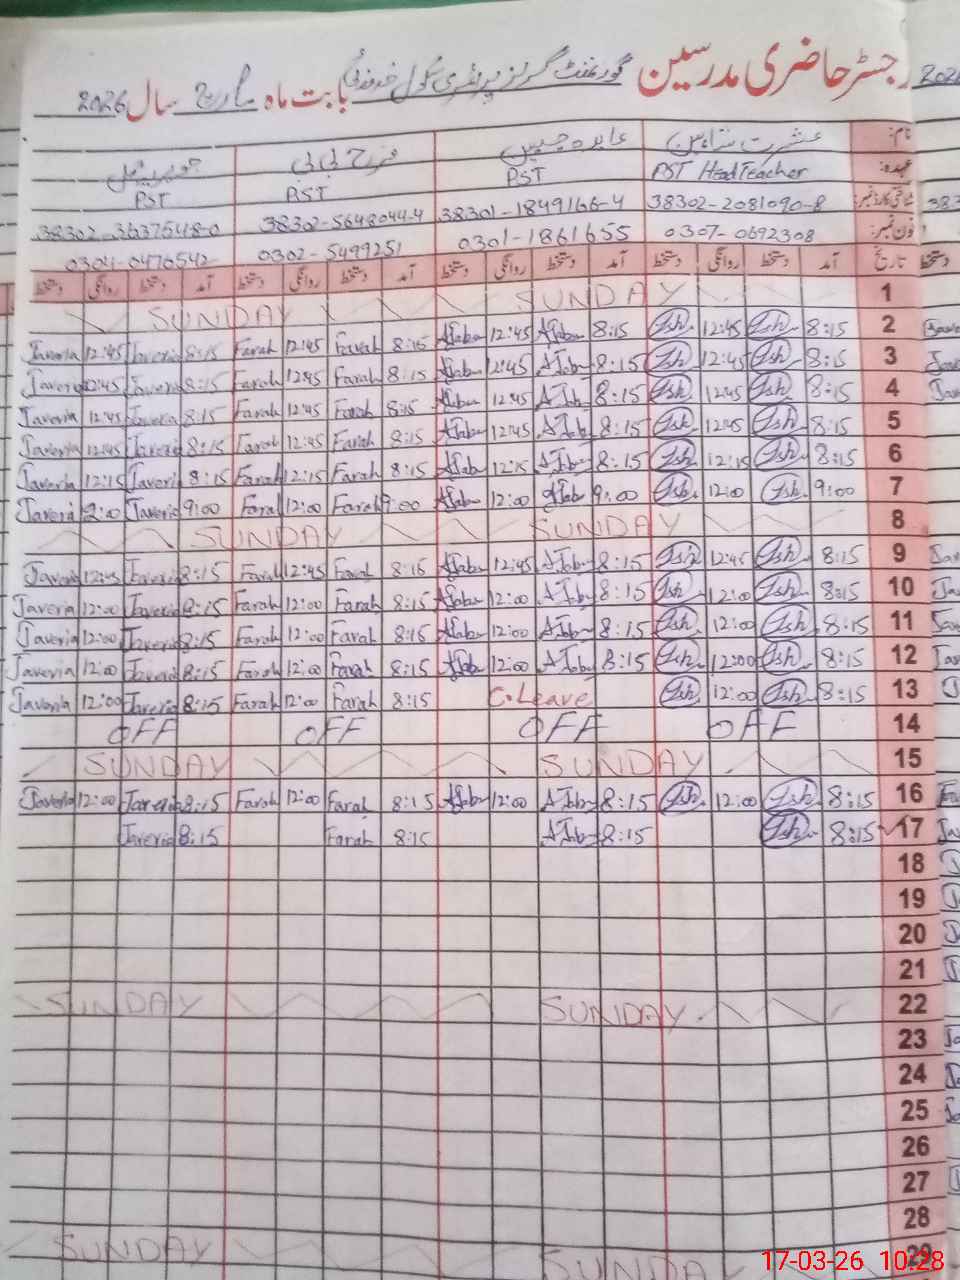 رجسٹر حاضری مدرسین گورنمنٹ گرلز پرائمری سکول بابت ماہ مارچ سال 2026
نام: عشرت شاہین عابدہ جبیں فرح بی بی
عہدہ: PST Head Teacher PST PST PST
شناختی کارڈ نمبر: 38302-2081090-8 38301-1849166-4 38302-5648044-4 38302-3637548-0
فون نمبر: 0307-0692308 0301-1861655 0302-5499251 0304-0476542
تاریخ آمد دستخط روانگی دستخط آمد دستخط روانگی دستخط آمد دستخط روانگی دستخط آمد دستخط روانگی دستخط
SUNDAY SUNDAY 1
Javeria 12:45 Javeria 8:15 Farah 12:45 Farah 8:15 12:45 8:15 Ish 12:45 Ish 8:15 2
Javeria 12:45 Javeria 8:15 Farah 12:45 Farah 8:15 12:45 8:15 Ish 12:45 Ish 8:15 3
Javeria 12:45 Javeria 8:15 Farah 12:45 Farah 8:15 12:45 8:15 Ish 12:45 Ish 8:15 4
Javeria 12:45 Javeria 8:15 Farah 12:45 Farah 8:15 12:45 8:15 Ish 12:45 Ish 8:15 5
Javeria 12:15 Javeria 8:15 Farah 12:15 Farah 8:15 12:15 8:15 Ish 12:15 Ish 8:15 6
Javeria 12:00 Javeria 9:00 Farah 12:00 Farah 9:00 12:00 9:00 Ish 12:00 Ish 9:00 7
SUNDAY SUNDAY 8
Javeria 12:45 Javeria 8:15 Farah 12:45 Farah 8:15 12:45 8:15 Ish 12:45 Ish 8:15 9
Javeria 12:00 Javeria 8:15 Farah 12:00 Farah 8:15 12:00 8:15 Ish 12:00 Ish 8:15 10
Javeria 12:00 Javeria 8:15 Farah 12:00 Farah 8:15 12:00 8:15 Ish 12:00 Ish 8:15 11
Javeria 12:00 Javeria 8:15 Farah 12:00 Farah 8:15 12:00 8:15 Ish 12:00 Ish 8:15 12
Javeria 12:00 Javeria 8:15 Farah 12:00 Farah 8:15 C.Leave Ish 12:00 Ish 8:15 13
OFF OFF OFF OFF 14
SUNDAY SUNDAY 15
Javeria 12:00 Javeria 8:15 Farah 12:00 Farah 8:15 12:00 8:15 Ish 12:00 Ish 8:15 16
Javeria 8:15 Farah 8:15 8:15 Ish 8:15 17
18
19
20
21
SUNDAY SUNDAY 22
23
24
25
26
27
28
SUNDAY SUNDAY 29
17-03-26 10:28